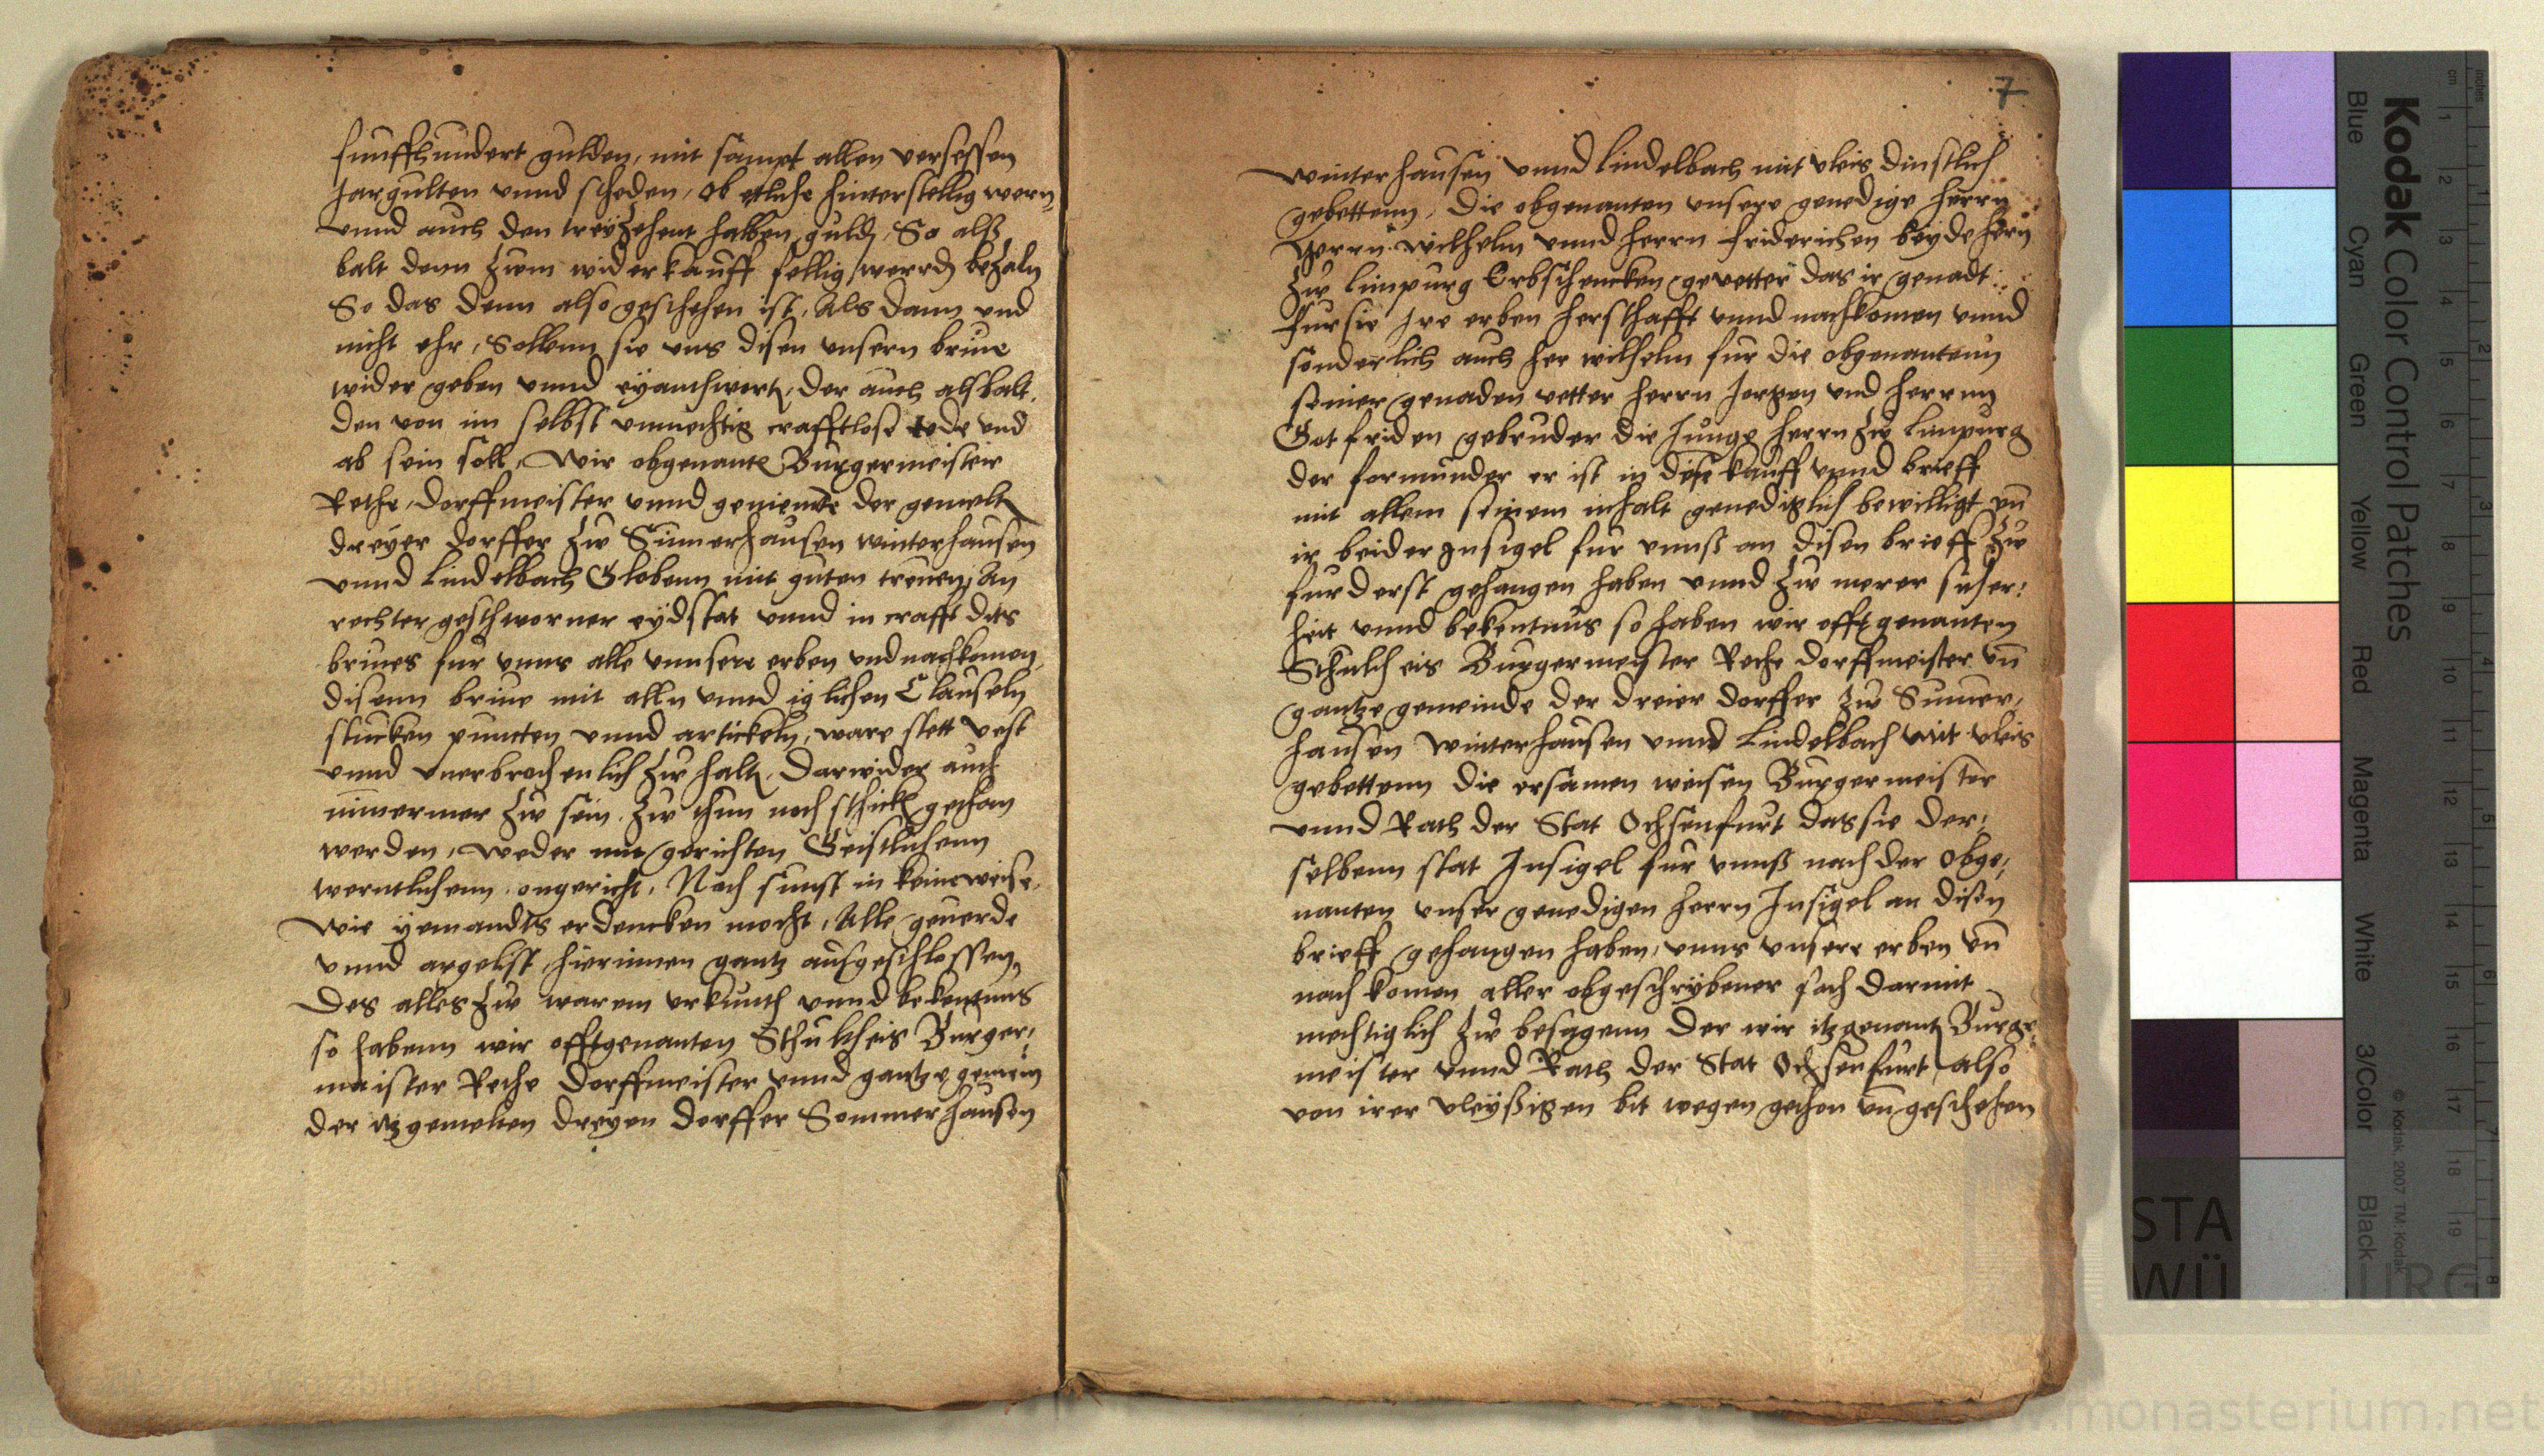 funffhundert gulden, mit sampt allen versessen
Jargulten vnnd scheden, ob etliche hinterstellig wern
vnnd auch den treyzehent halben guld, So alß
balt denn zum widerkauff fellig werrd bezaln
So das denn also geschehen ist, Als dann vnd
nicht ehr, Sollenn sie vns disen vnsern briue
wider geben vnnd, der auch alsbalt
den von im selbst vnmechtig crafftloß tode vnd
ab sein soll, Wir obgenante Burgermeister
Rethe, dorffmeister vnnd gemeinde der gemelt
dreyer dorffer zw Sumerhausen winterhausen
vnnd Lindelbach Globenn mit guten treuen, An
rechter geschworner eydsstat vnnd in crafft dits
briues fur vnns alle vnnsere erben vnd nachkomen
disenn briue mit alln vnnd iglichen Clauseln
stucken puncten vnnd artickeln, ware stett vest
vnnd vnerbrochenlich zw halt, Darwider auch
nimermer zw sein, zw thun noch schick gethan
werden, weder mit gerichten Geistlichenn
werntlichenn ongericht, Noch sunst in keineweise,
wie yemandts erdencken mocht, Alle geuerde
vnnd argelist, hierinnen gantz außgeschlossen,
Des alles zw warem vrkunth vnnd bekentnus
so habenn wir offtgenanten Schultheis Burger,
maister Rethe Dorffmeister vnnd gantze gemein
der itzgemelten dreyen dorffer Sommerhausen
7
winterhausen vnnd Lindelbach mit vleis dinstlich
gebettenn, Die obgenanten vnsere genedige herrn
Herrn wilhelm vnnd herrn friderichen beyde hern
zw Limpurg Erbschencken gevetter das ir genadt
fur sie Ire erben herschafft vnnd nachkomen vnnd
sonderlich auch her wilhelm fur die obgenantenn
seiner genaden vetter herrn Jorgen vnd herrnn
Gotfriden gebruder die Junge herrn zw Limpurg
der formunder er ist in dise kauff vnnd brieff
mit allem seinem inhalt genediglich bewilligt vn
ir beider Insigel fur vnnß an disen brieff zw
furderst gehangen haben vnnd zw merer sicher:
heit vnnd bekentnus so haben wir offtgenanten
Schultheis Burgermeyster Rethe dorffmeister vn
gantze gemeinde der dreier dorffer zw Sumer,
hausen Winterhausen vnnd Lindelbach mit vleis
gebettenn die ersamen weisen Burgermeister
vnnd Rath der Stat Ochsenfurt das sie der:
selbenn stat Insigel fur vnnß nach der obge,
nanten vnser genedigen herrn Insigel an disen
brieff gehangen haben, vnns vnsere erben vn
nachkomen aller obgeschrybener sach darmit
mechtiglich zw besagenn Der wir itzgenant Burger:
meister vnnd Rath der Stat Ochsenfurt also
von irer vleyßigen bit wegen gethon vn geschehen
Kodak Color Control Patches
Blue Cyan Green Yellow Red Magenta White 3/Color Black
© Kodak, 2007 TM: Kodak
cm 1 2 3 4 5 6 7 8 9 10 11 12 13 14 15 16 17 18 19
inches 1 2 3 4 5 6 7 8
STA
WÜRZBURG
monasterium.net